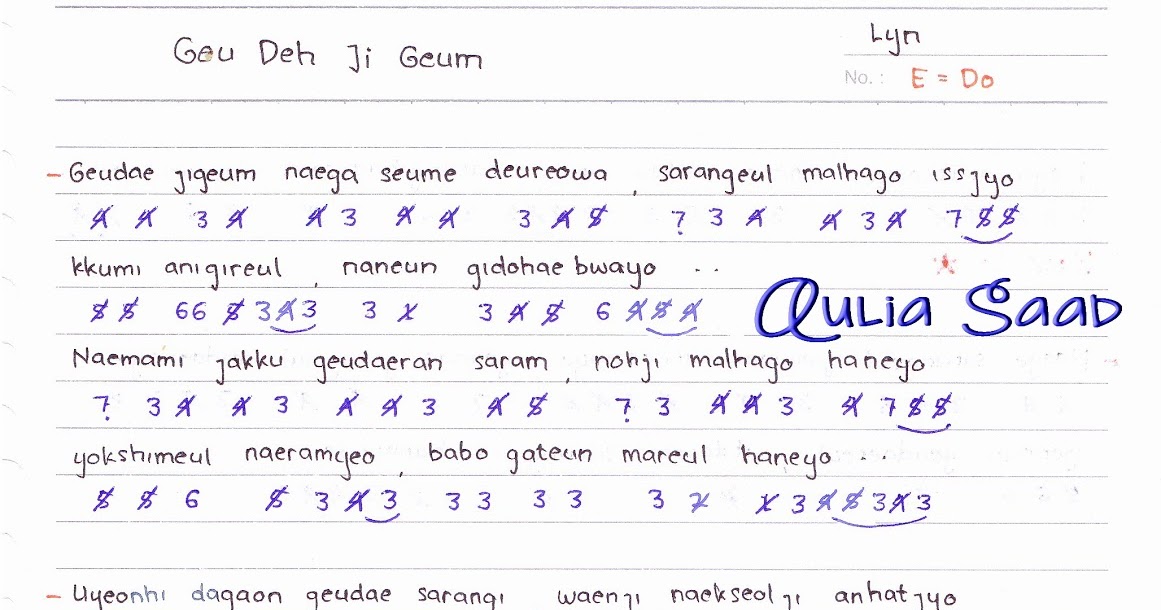 Geu Deh Ji Geum
Lyn
No. : E = Do
- Geudae jigeum naega seume deureowa , sarangeul malhago issjyo
4̸ 4̸ 3 4̸ 4̸ 3 4̸ 4̸ 3 4̸ 5̸ 7̣ 3 4̸ 4̸ 3 4̸ 7 5̸ 5̸
kkumi anigireul , naneun gidohae bwayo ..
5̸ 5̸ 66 5̸ 3 4̸ 3 3 3 4̸ 5̸ 6 4̸ 5̸ 4̸
Aulia Saad
Naemami jakku geudaeran saram , nohji malhago haneyo
7̣ 3 4̸ 4̸ 3 4̸ 4̸ 3 4̸ 5̸ 7̣ 3 4̸ 4̸ 3 4̸ 7 5̸ 5̸
yokshimeul naeramyeo , babo gateun mareul haneyo ..
5̸ 5̸ 6 5̸ 3 4̸ 3 3 3 3 3 3 3 4̸ 5̸ 3 4̸ 3
- Uyeonhi dagaon geudae sarangi waenji naekseolji anhatjyo